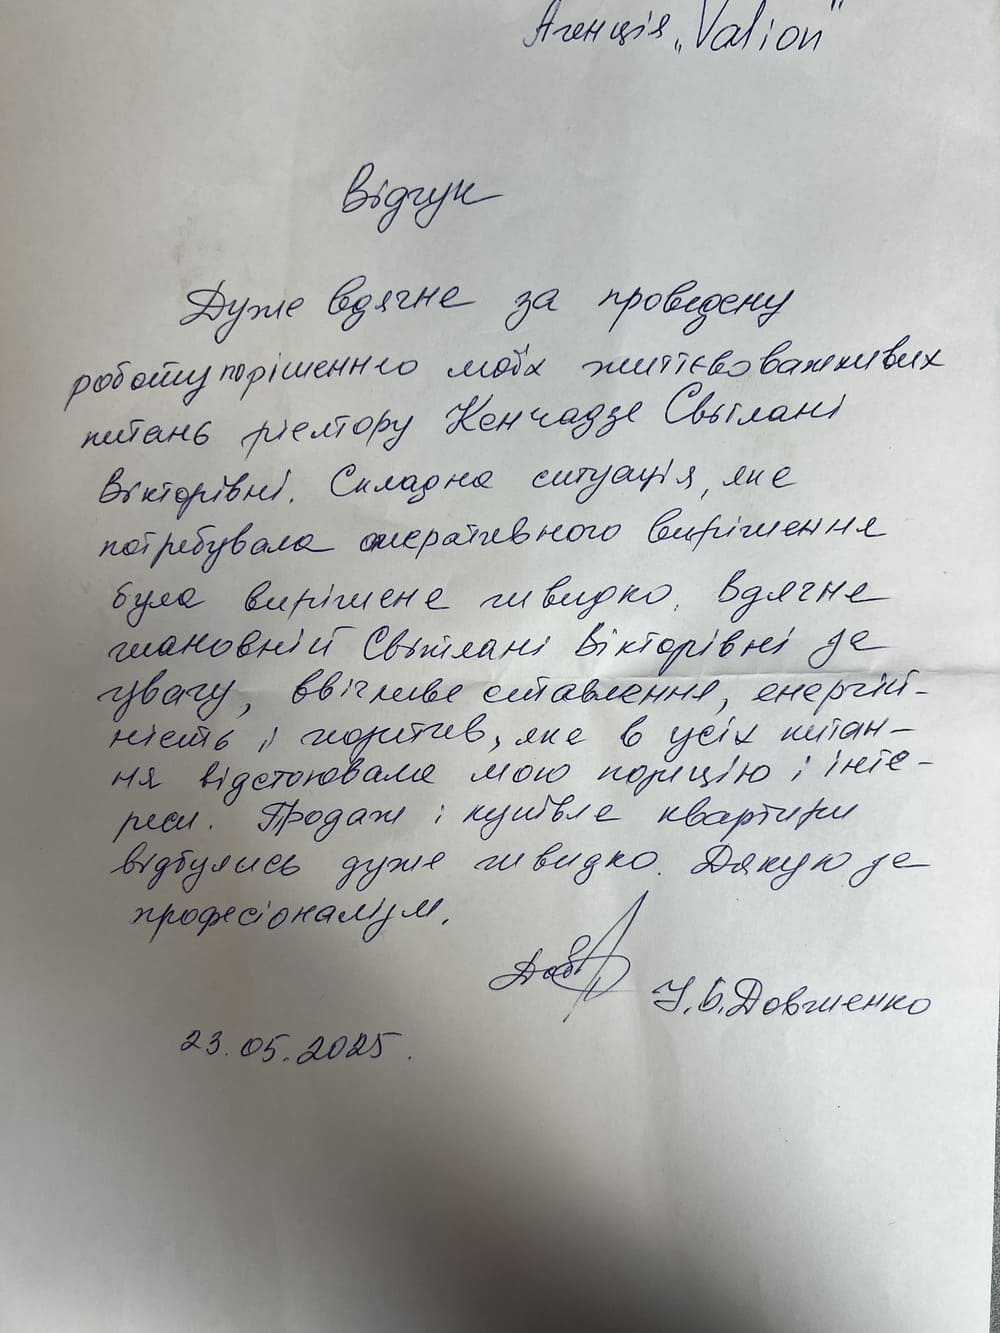 Агенція „Valion"
Відгук
Дуже вдячна за проведену
роботу по рішенню моїх життєво важливих
питань ріелтору Кенчадзе Світлані
Вікторівні. Складна ситуація, яка
потребувала оперативного вирішення
була вирішена швидко. Вдячна
шановній Світлані Вікторівні за
увагу, ввічливе ставлення, енергій-
ність і позитив, яка в усіх питан-
ня відстоювала мою позицію і інте-
реси. Продаж і купівля квартири
відбулись дуже швидко. Дякую за
професіоналізм.
Довшенко
23.05.2025.